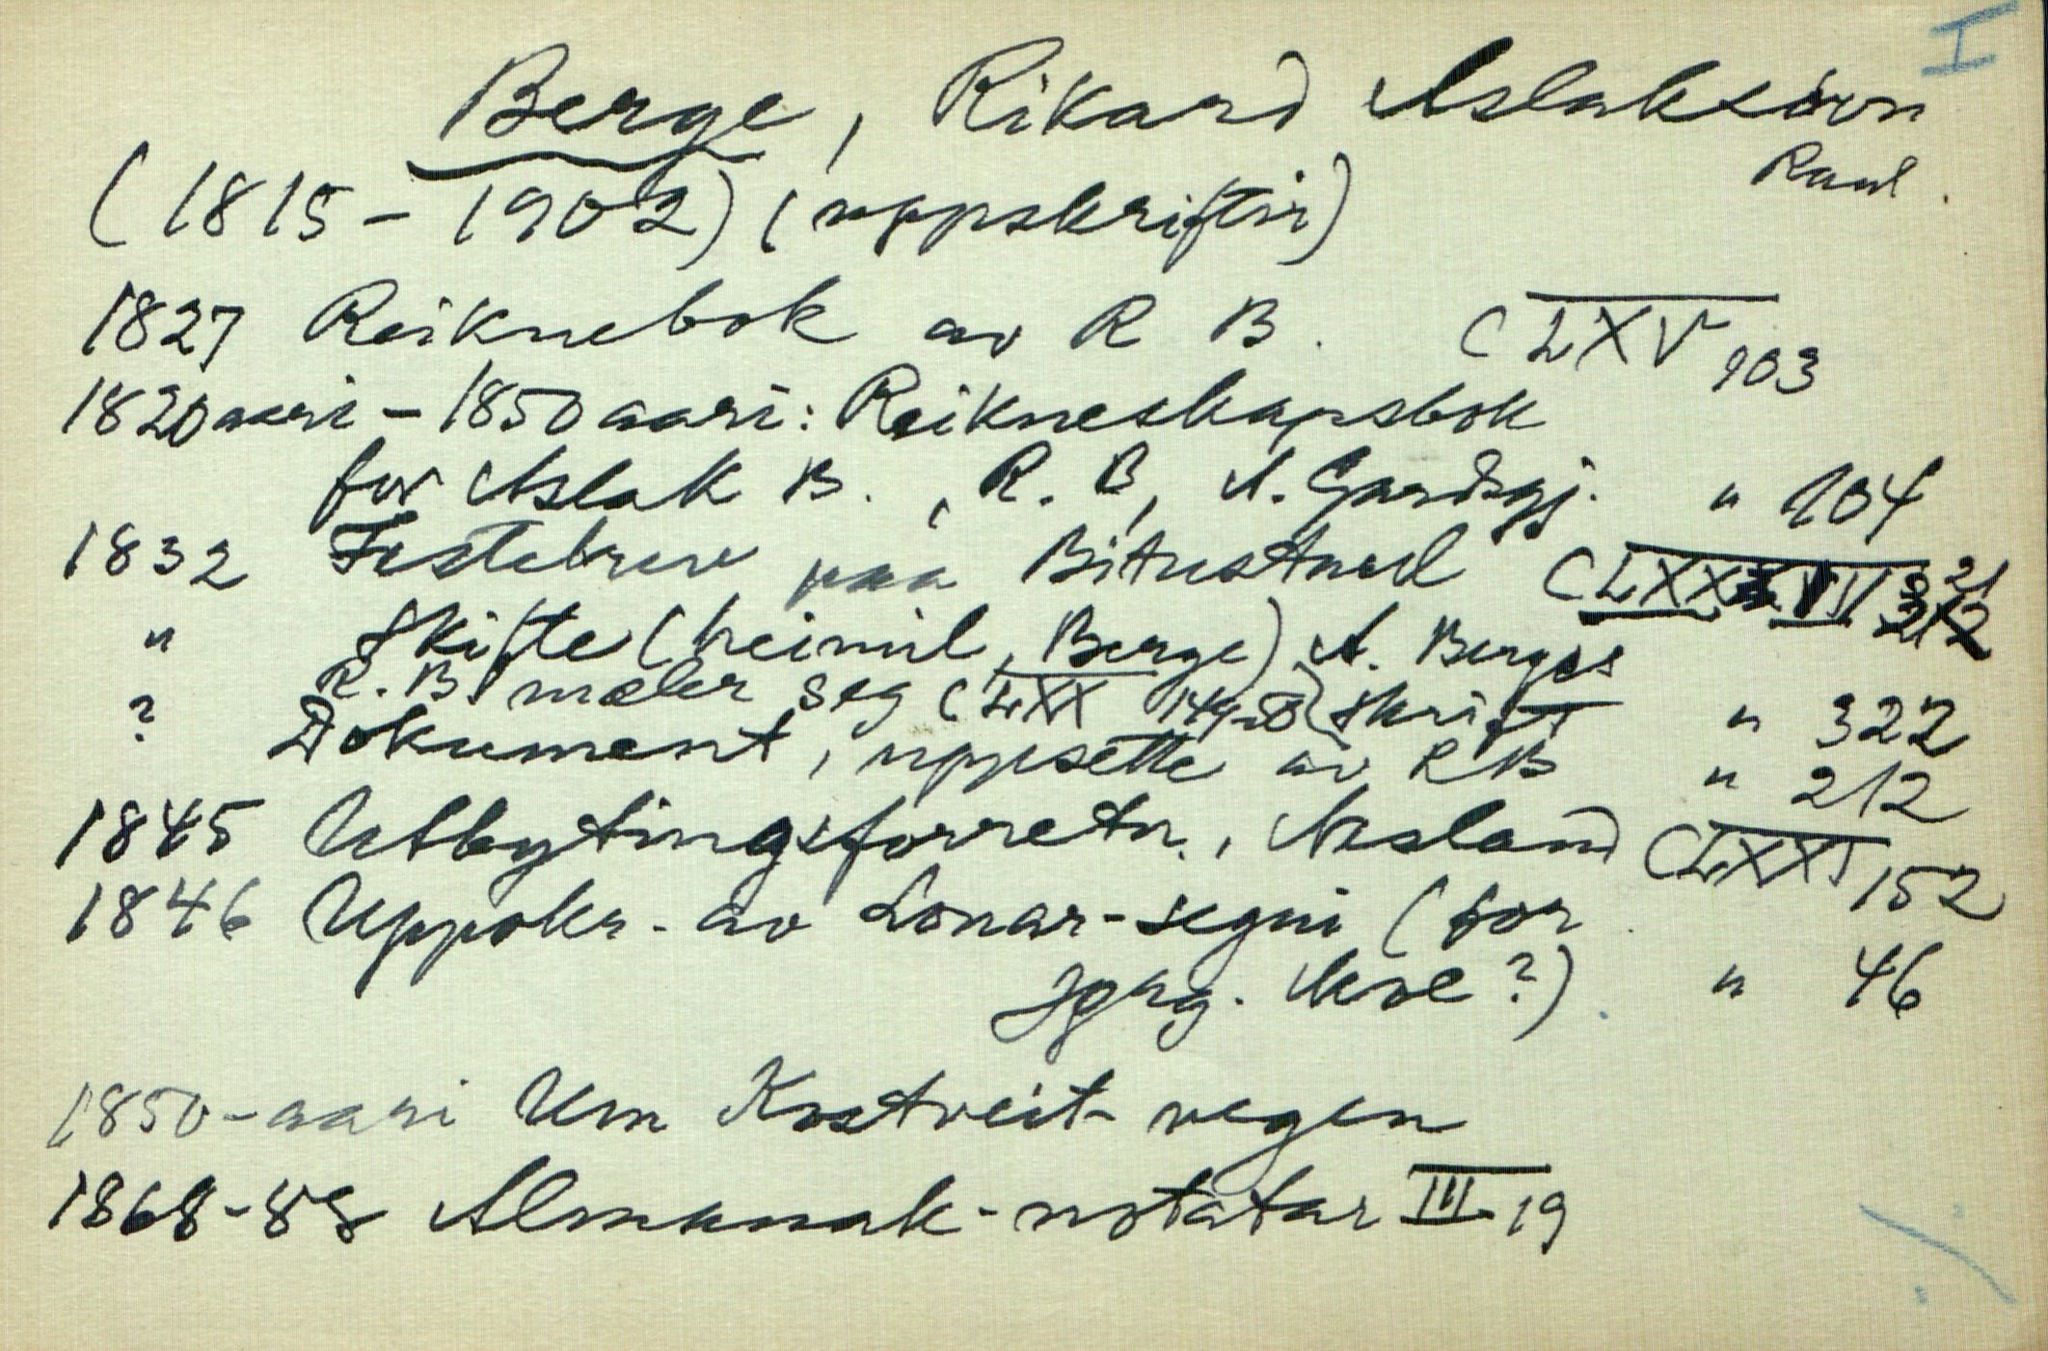 I
Berge, Rikard Aslaksson
Raul.
(1815-1902) (uppskriftir)
1827 Reiknebok av R B. CLXV 103
1820aari - 1850aari: Reikneskapsbok
for Aslak B., R. B, A. Gardsgj. " 104
1832 Festebrev paa Bitustaul CLXX VII 21
" Skifte (heimil, Berge) A. Berges
R. B. mæler seg CLXX skrift " 322
? Dokument, uppsette av RB " 212
1845 Utbytingsforretn., Aasland CLXXI 152
1846 Uppskr. av Lonar-segni (for
spug. Moe?) " 46
1850-aari Um Kostveit-vegen
1868-88 Almanak-notatar III 19